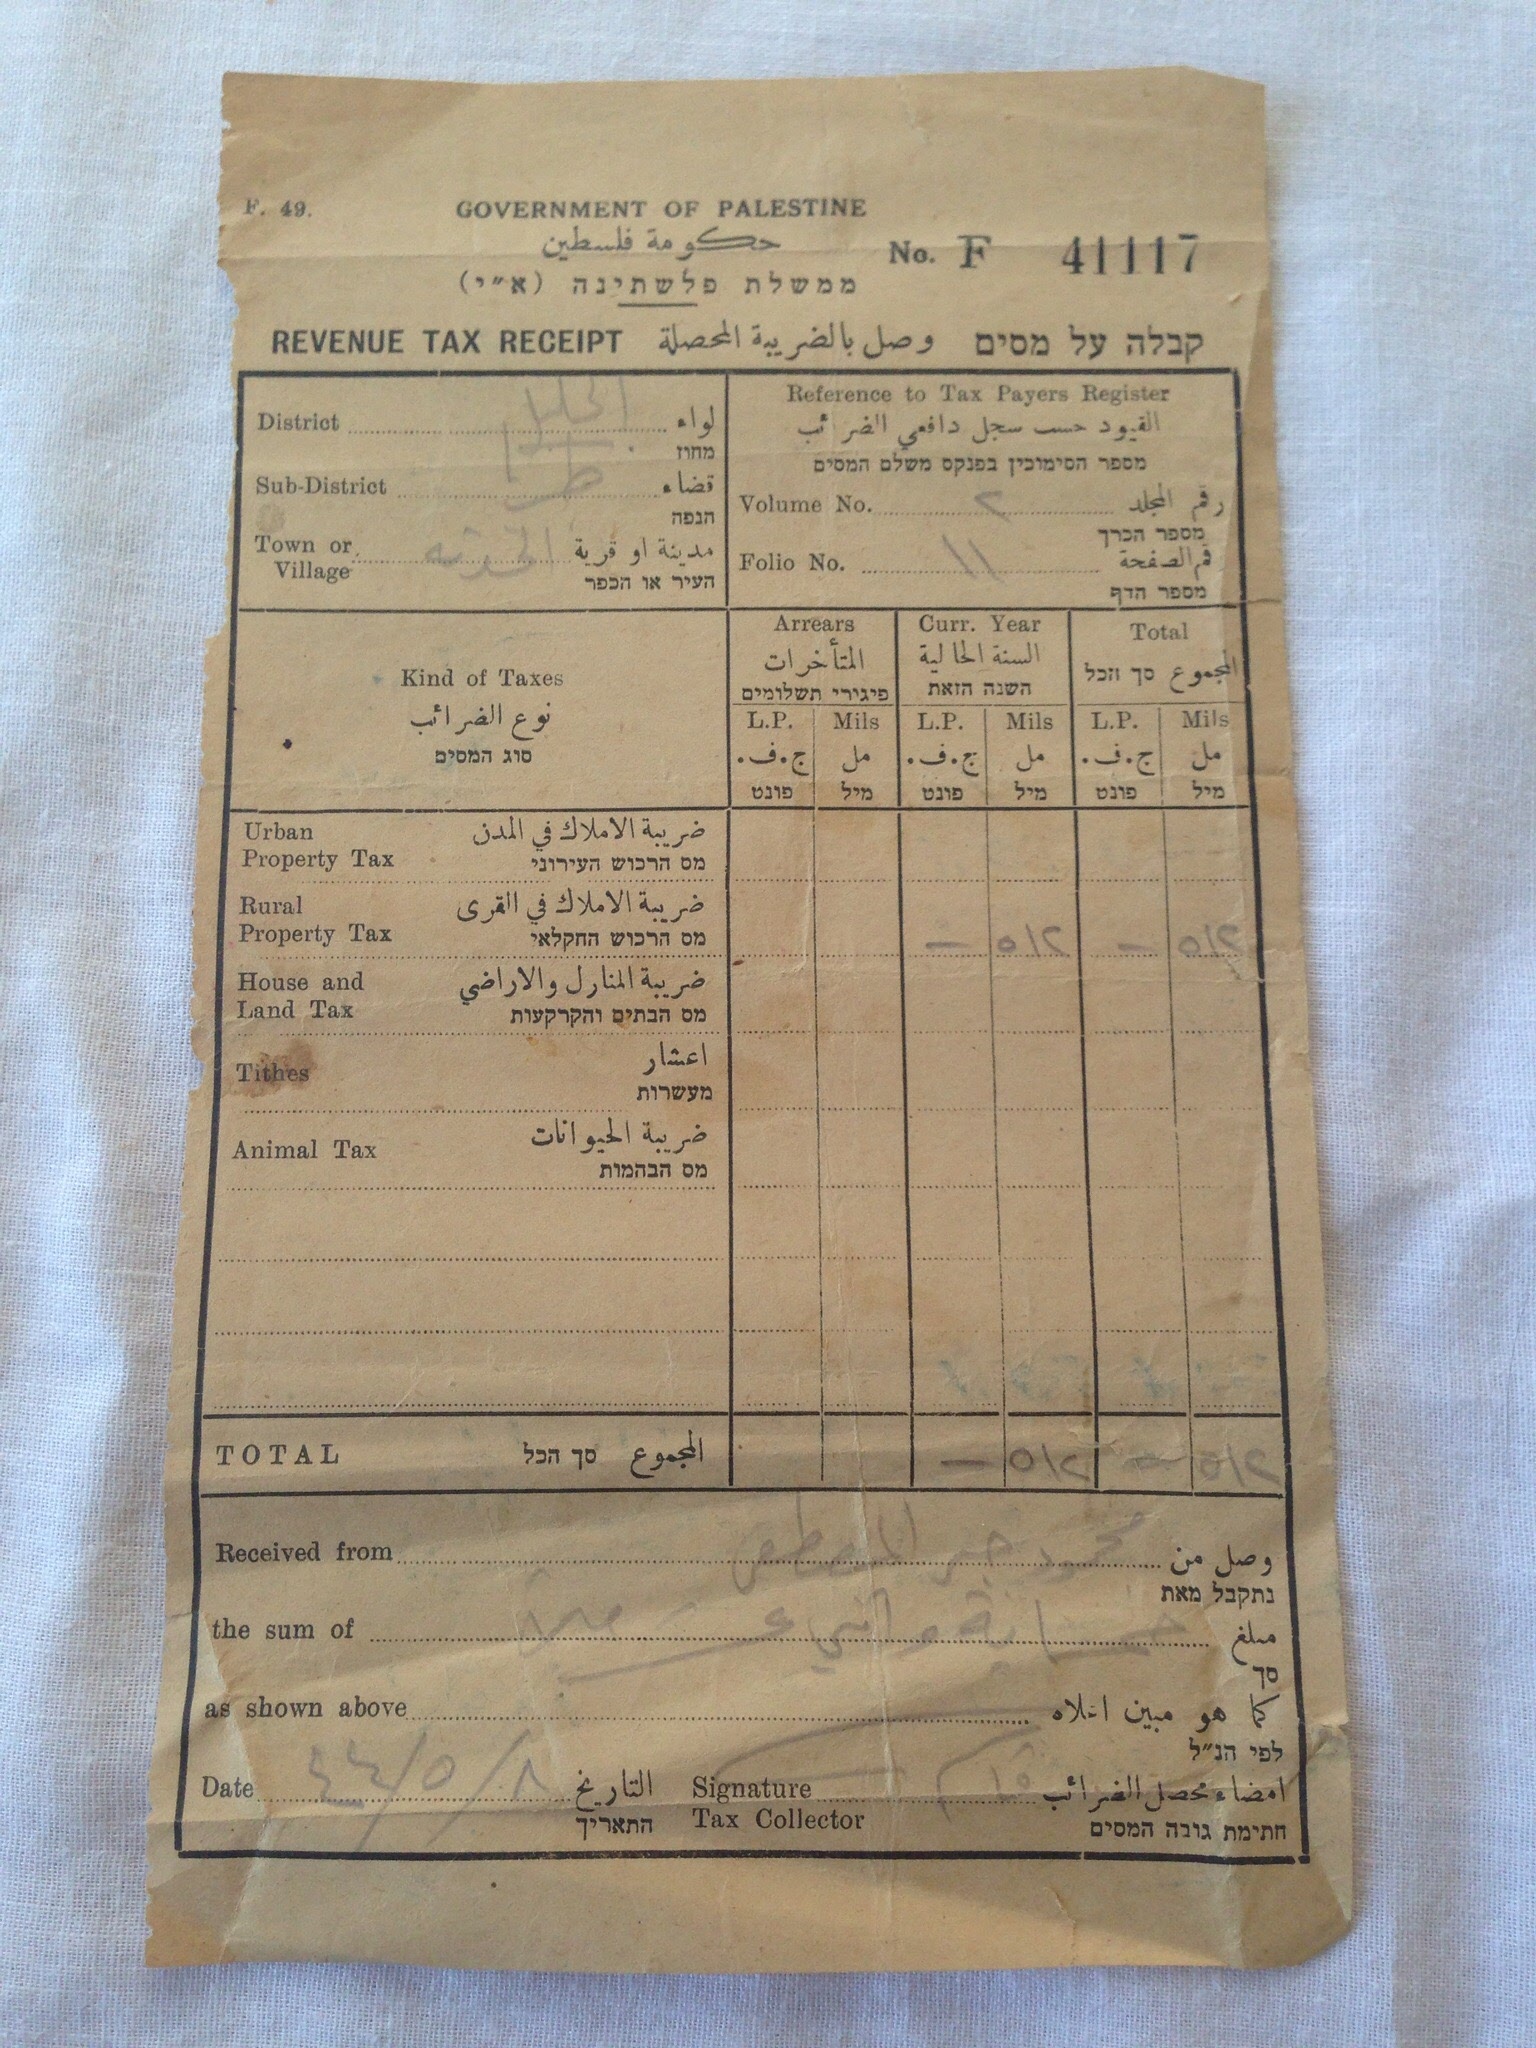 F. 49.
GOVERNMENT OF PALESTINE
حكومة فلسطين
No. F 41117
ממשלת פלשתינה (א״י)
REVENUE TAX RECEIPT وصل بالضريبة المحصلة קבלה על מסים
District الجليل لواء
מחוז
Sub-District قضاء
הנפה
Town or Village مدينة او قرية
העיר או הכפר
Reference to Tax Payers Register
القيود حسب سجل دافعي الضرائب
מספר הסימוכין בפנקס משלם המסים
Volume No. ٢ رقم المجلد
מספר הכרך
Folio No. ١١ قم الصفحة
מספר הדף
Kind of Taxes
نوع الضرائب
סוג המסים
Arrears Curr. Year Total
المتأخرات السنة الحالية المجموع סך הכל
פיגורי תשלומים השנה הזאת
L.P. Mils L.P. Mils L.P. Mils
ج.ف. مل ج.ف. مل ج.ف. مل
פונט מיל פונט מיל פונט מיל
Urban Property Tax ضريبة الاملاك في المدن
מס הרכוש העירוני
Rural Property Tax ضريبة الاملاك في القرى
מס הרכוש החקלאי
— ٥١٢ — ٥١٢
House and Land Tax ضريبة المنازل والاراضي
מס הבתים והקרקעות
Tithes اعشار
מעשרות
Animal Tax ضريبة الحيوانات
מס הבהמות
TOTAL المجموع סך הכל — ٥١٢ — ٥١٢
Received from محمود وصل من
נתקבל מאת
the sum of مبلغ
סך
as shown above كما هو مبين اعلاه
לפי הנ״ל
Date ٤٤/٥/٨ التاريخ
התאריך
Signature Tax Collector امضاء محصل الضرائب
חתימת גובה המסים